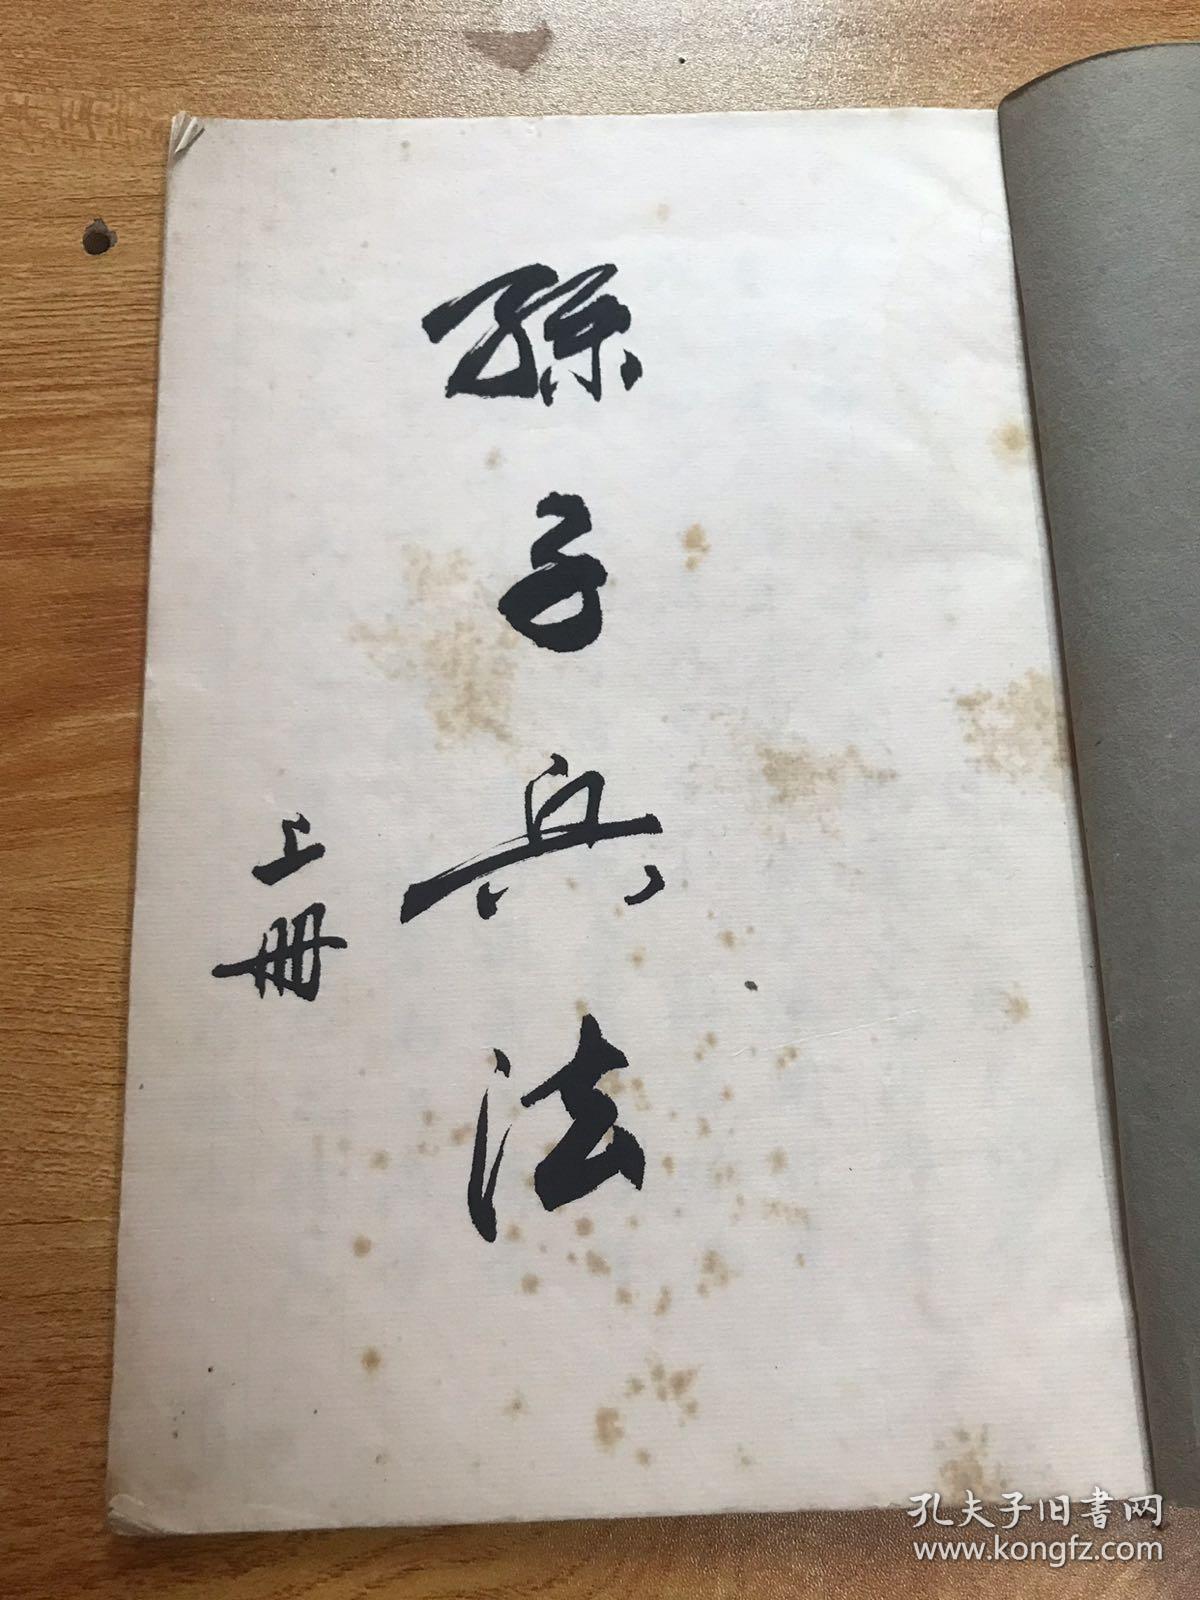 孫子兵法
上冊
孔夫子旧書网
www.kongfz.com